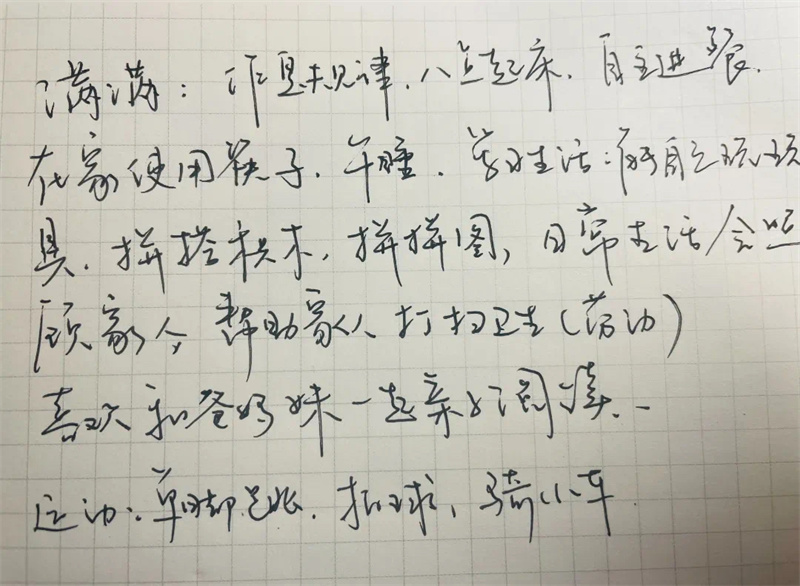 满满：作息规律，八点起床，自主进餐，
在家使用筷子，午睡，节日生活：能自己玩玩
具，拼搭积木，拼拼图，日常生活会照
顾家人 帮助家人打扫卫生（劳动）
喜欢和爸妈妹一起亲子阅读。
运动：单脚跳，拍球，骑小车